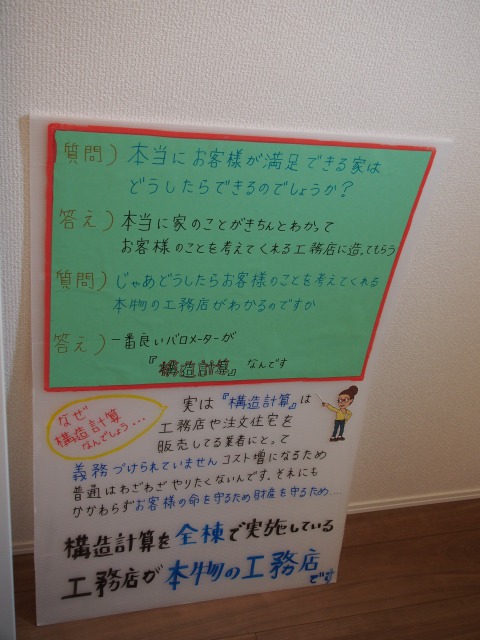 質問) 本当にお客様が満足できる家は
どうしたらできるのでしょうか?
答え) 本当に家のことがきちんとわかって
お客様のことを考えてくれる工務店に造ってもらう
質問) じゃあどうしたらお客様のことを考えてくれる
本物の工務店がわかるのですか
答え) 一番良いバロメーターが
『構造計算』なんです
なぜ
構造計算
なんでしょう...
実は『構造計算』は
工務店や注文住宅を
販売してる業者にとって
義務づけられていませんコスト増になるため
普通はわざわざやりたくないんです。それにも
かかわらずお客様の命を守るため財産を守るため...
構造計算を全棟で実施している
工務店が本物の工務店です